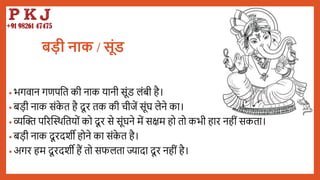 PKJ
+91 98261 47475
बड़ी नाक / सूंड
• भगवान गणपति की नाक यानी सूंड लंबी है।
• बड़ी नाक संकेत है दूर तक की चीजें सूंघ लेने का।
• व्यक्ति परिस्थितियों को दूर से सूंघने में सक्षम हो तो कभी हार नहीं सकता।
• बड़ी नाक दूरदर्शी होने का संकेत है।
• अगर हम दूरदर्शी हैं तो सफलता ज्यादा दूर नहीं है।